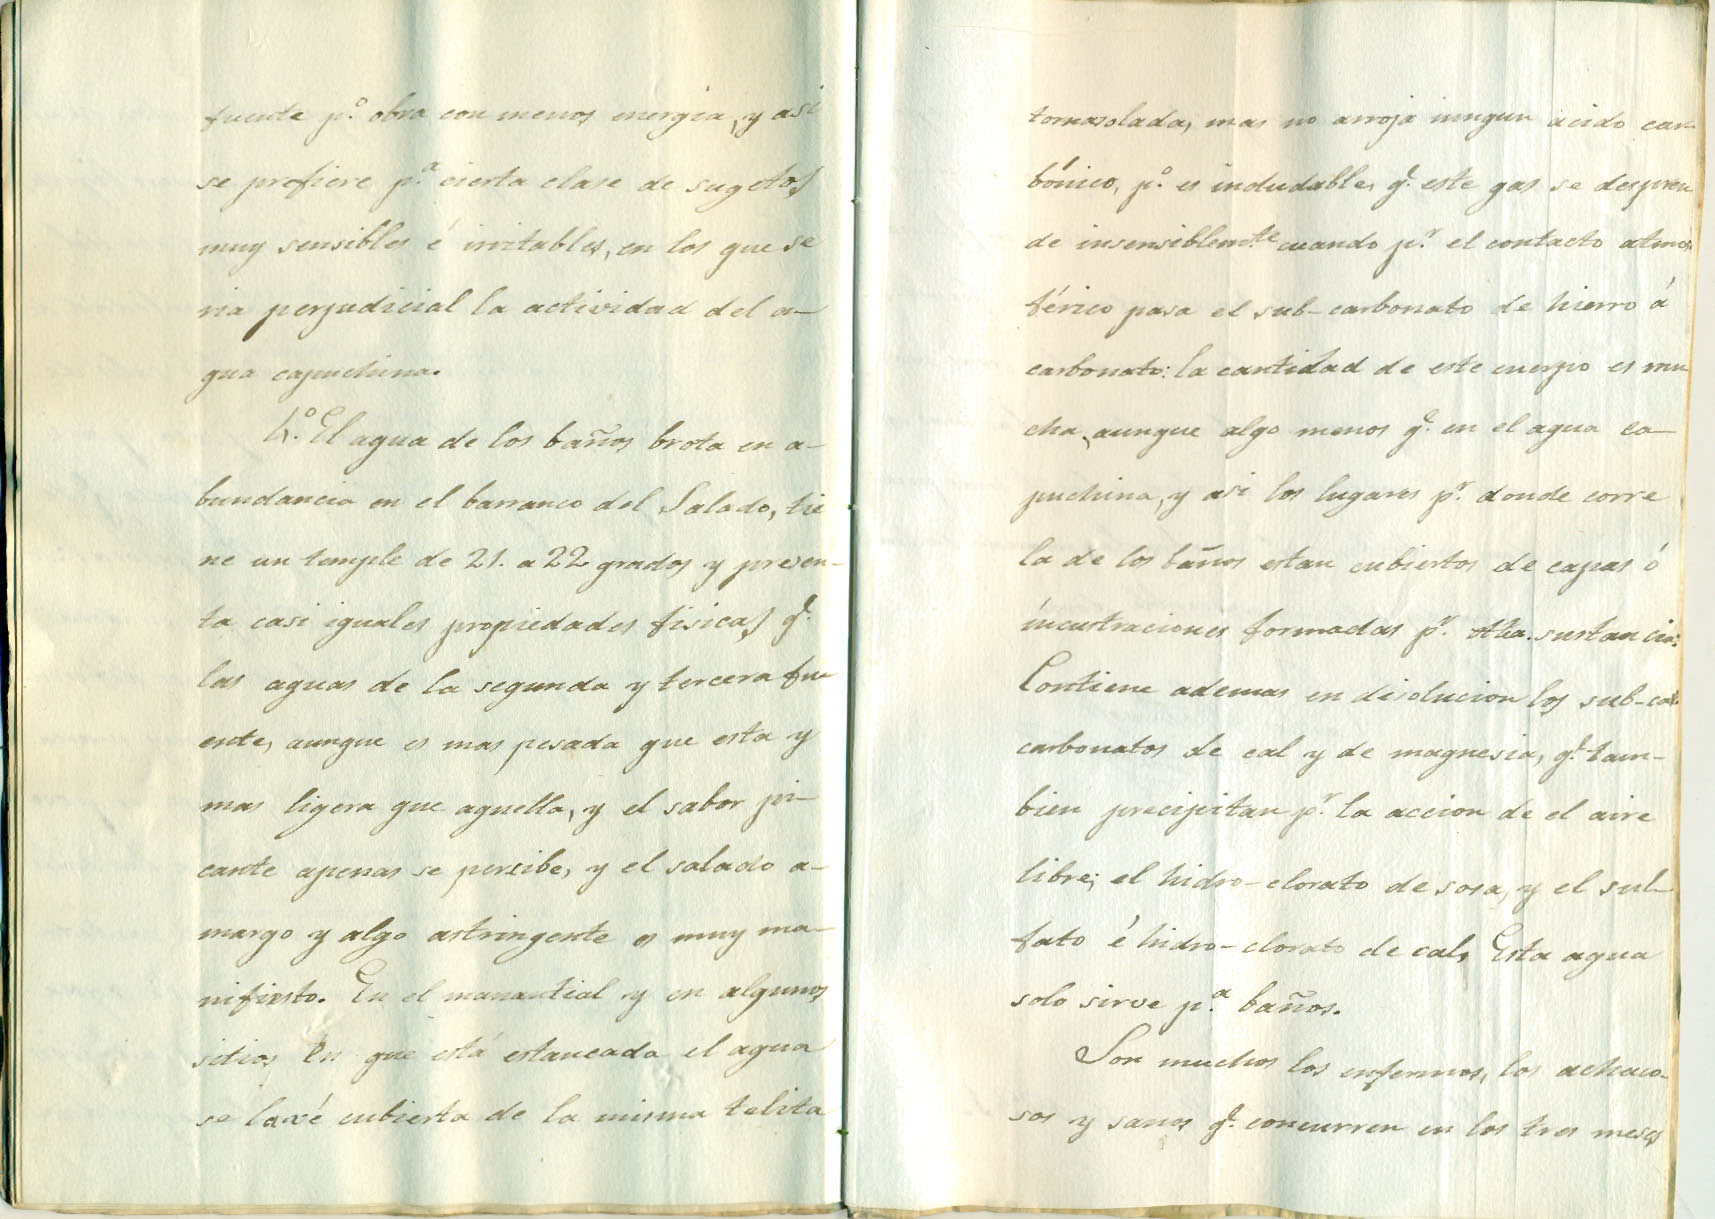 fuente p.º obra con menos energia, y asi
se prefiere p.ª cierta clase de sugetos
muy sensibles é irritables, en los que se
ria perjudicial la actividad del a-
gua capuchina.
4.º El agua de los baños brota en a-
bundancia en el barranco del Salado, tie
ne un temple de 21. a 22 grados y presen-
ta casi iguales propiedades fisicas q.e
las aguas de la segunda y tercera fu
ente, aunque es mas pesada que esta y
mas ligera que aquella, y el sabor pi-
cante apenas se percibe, y el salado a-
margo y algo astringente es muy ma-
nifiesto. En el manantial y en algunos
sitios en que está estancada el agua
se la vé cubierta de la misma telita
tornasolada, mas no arroja ningun acido car-
bónico, p.º es indudable q.e este gas se despren
de insensiblem.te cuando p.r el contacto atmos
férico pasa el sub-carbonato de hierro á
carbonato: la cantidad de este cuerpo es mu
cha, aunque algo menos q.e en el agua ca-
puchina, y asi los lugares p.r donde corre
la de los baños estan cubiertos de capas ó
incustraciones formadas p.r dha. sustancia.
Contiene ademas en disolucion los sub-car
carbonatos de cal y de magnesia, q.e tam-
bien precipitan p.r la accion de el aire
libre; el hidro-clorato de sosa, y el sul-
fato é hidro-clorato de cal. Esta agua
solo sirve p.ª baños.
Son muchos los enfermos, los achaco-
sos y sanos q.e concurren en los tres meses